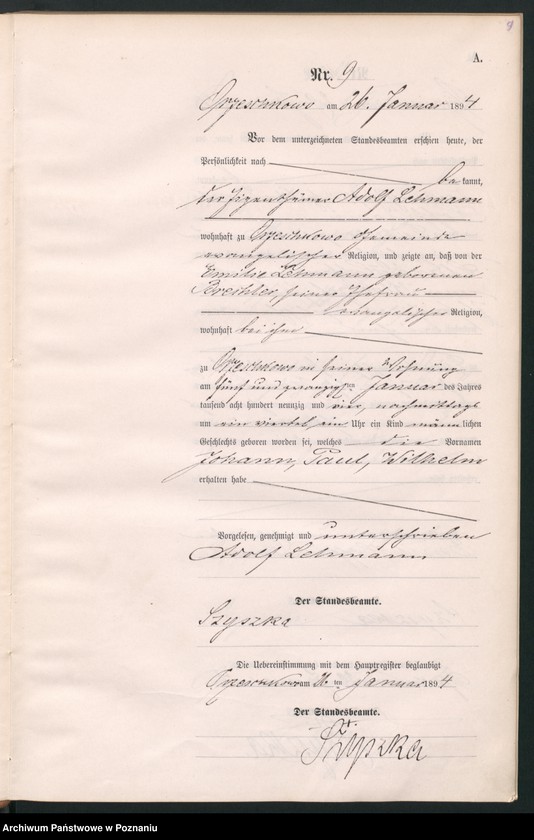 9
A.
Nr. 9
Orzeschkowo am 26. Januar 1894
Vor dem unterzeichneten Standesbeamten erschien heute, der
Persönlichkeit nach
bekannt,
der Eigenthümer Adolf Lehmann
wohnhaft zu Orzeschkowo Gemeinde
evangelischer Religion, und zeigte an, daß von der
Emilie Lehmann geborenen
seiner Ehefrau
evangelischer Religion,
wohnhaft bei ihm
zu Orzeschkowo in seiner Wohnung
am fünf und zwanzigsten Januar des Jahres
tausend acht hundert neunzig und vier, nachmittags
um ein viertel ein Uhr ein Kind männlichen
Geschlechts geboren worden sei, welches die Vornamen
Johann, Paul, Wilhelm
erhalten habe
Vorgelesen, genehmigt und unterschrieben
Adolf Lehmann
Der Standesbeamte.
Szyszka
Die Uebereinstimmung mit dem Hauptregister beglaubigt
Orzeschkowo am 26 ten Januar 1894
Der Standesbeamte.
Szyszka
Archiwum Państwowe w Poznaniu